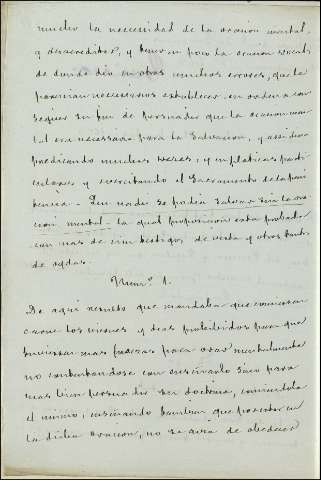 mucho la necesidad de la oracion mental,
y desacreditar, y tener en poco la oracion vocal
de donde dio en otros muchos errores, que le
parecian necesarios establecer en orden a con
seguir su fin de persuadir que la oracion men
tal era necesaria para la Salvacion, y asi dijo
predicando muchas veces, y en platicas parti
culares y escritando el Sacramento de la peni
tencia - Que nadie se podia salvar sin la ora
cion mental - la qual proposicion esta probada
con mas de cien testigos, de vista y otros tantos
de oydas.
Num.º 1.
De aqui resulto que mandaba que comiesen
carne los viernes y dias prohibidos para que
tuviesen mas fuerzas para orar mentalmente
no contentandose con enseñarlo sino para
mas bien persuadir su doctrina, comiendola
el mismo, enseñando tambien que por estar en
la dicha oracion, no se avia de obedecer